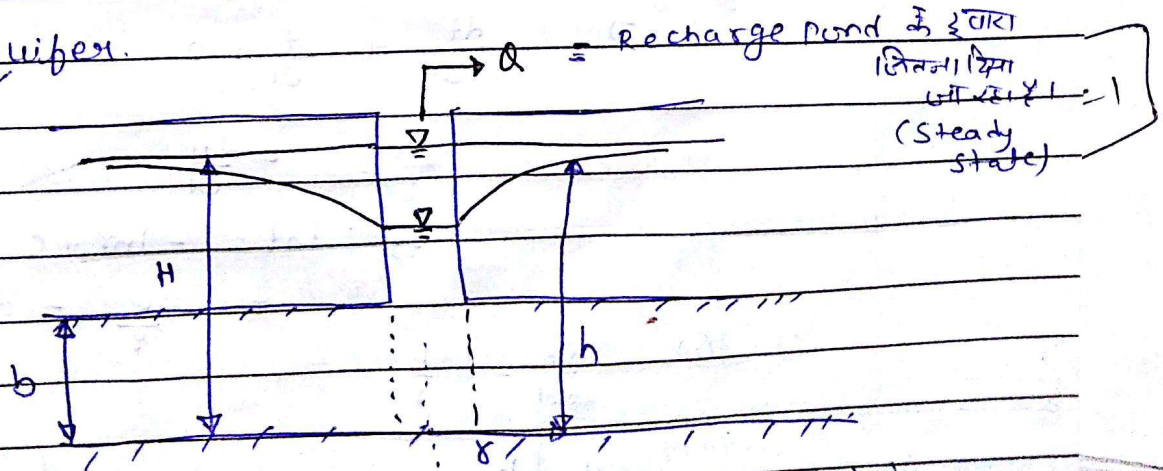 uifer.
Q = Recharge Pond के द्वारा
जितना दिया
जा रहा है। - 1
(Steady
state)
H
h
b
r